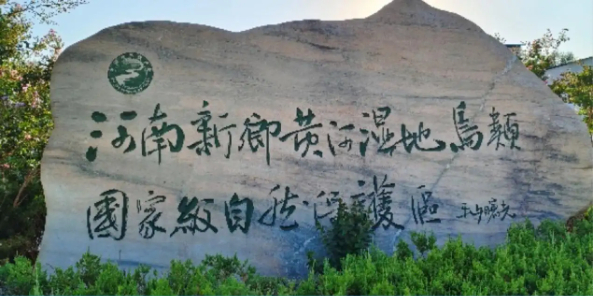 河南新鄉黄河湿地鳥類
國家級自然保護區